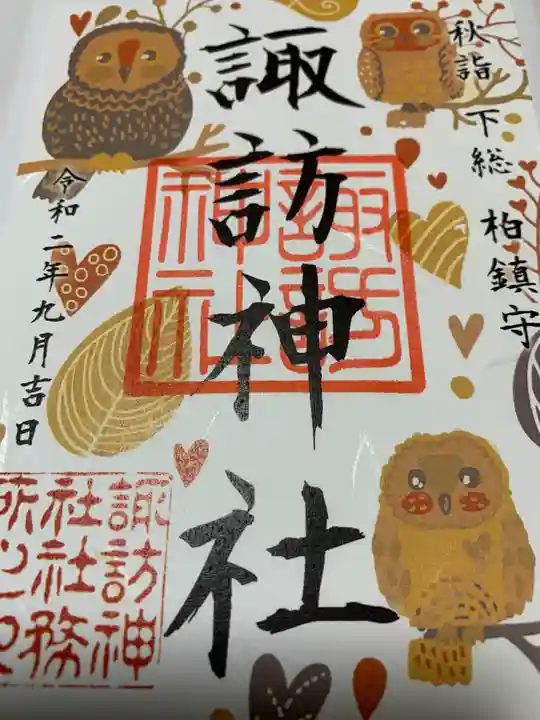 秋詣 下総 柏鎮守
諏訪神社
令和二年九月吉日
諏訪神社
諏訪神
社社務
所之印